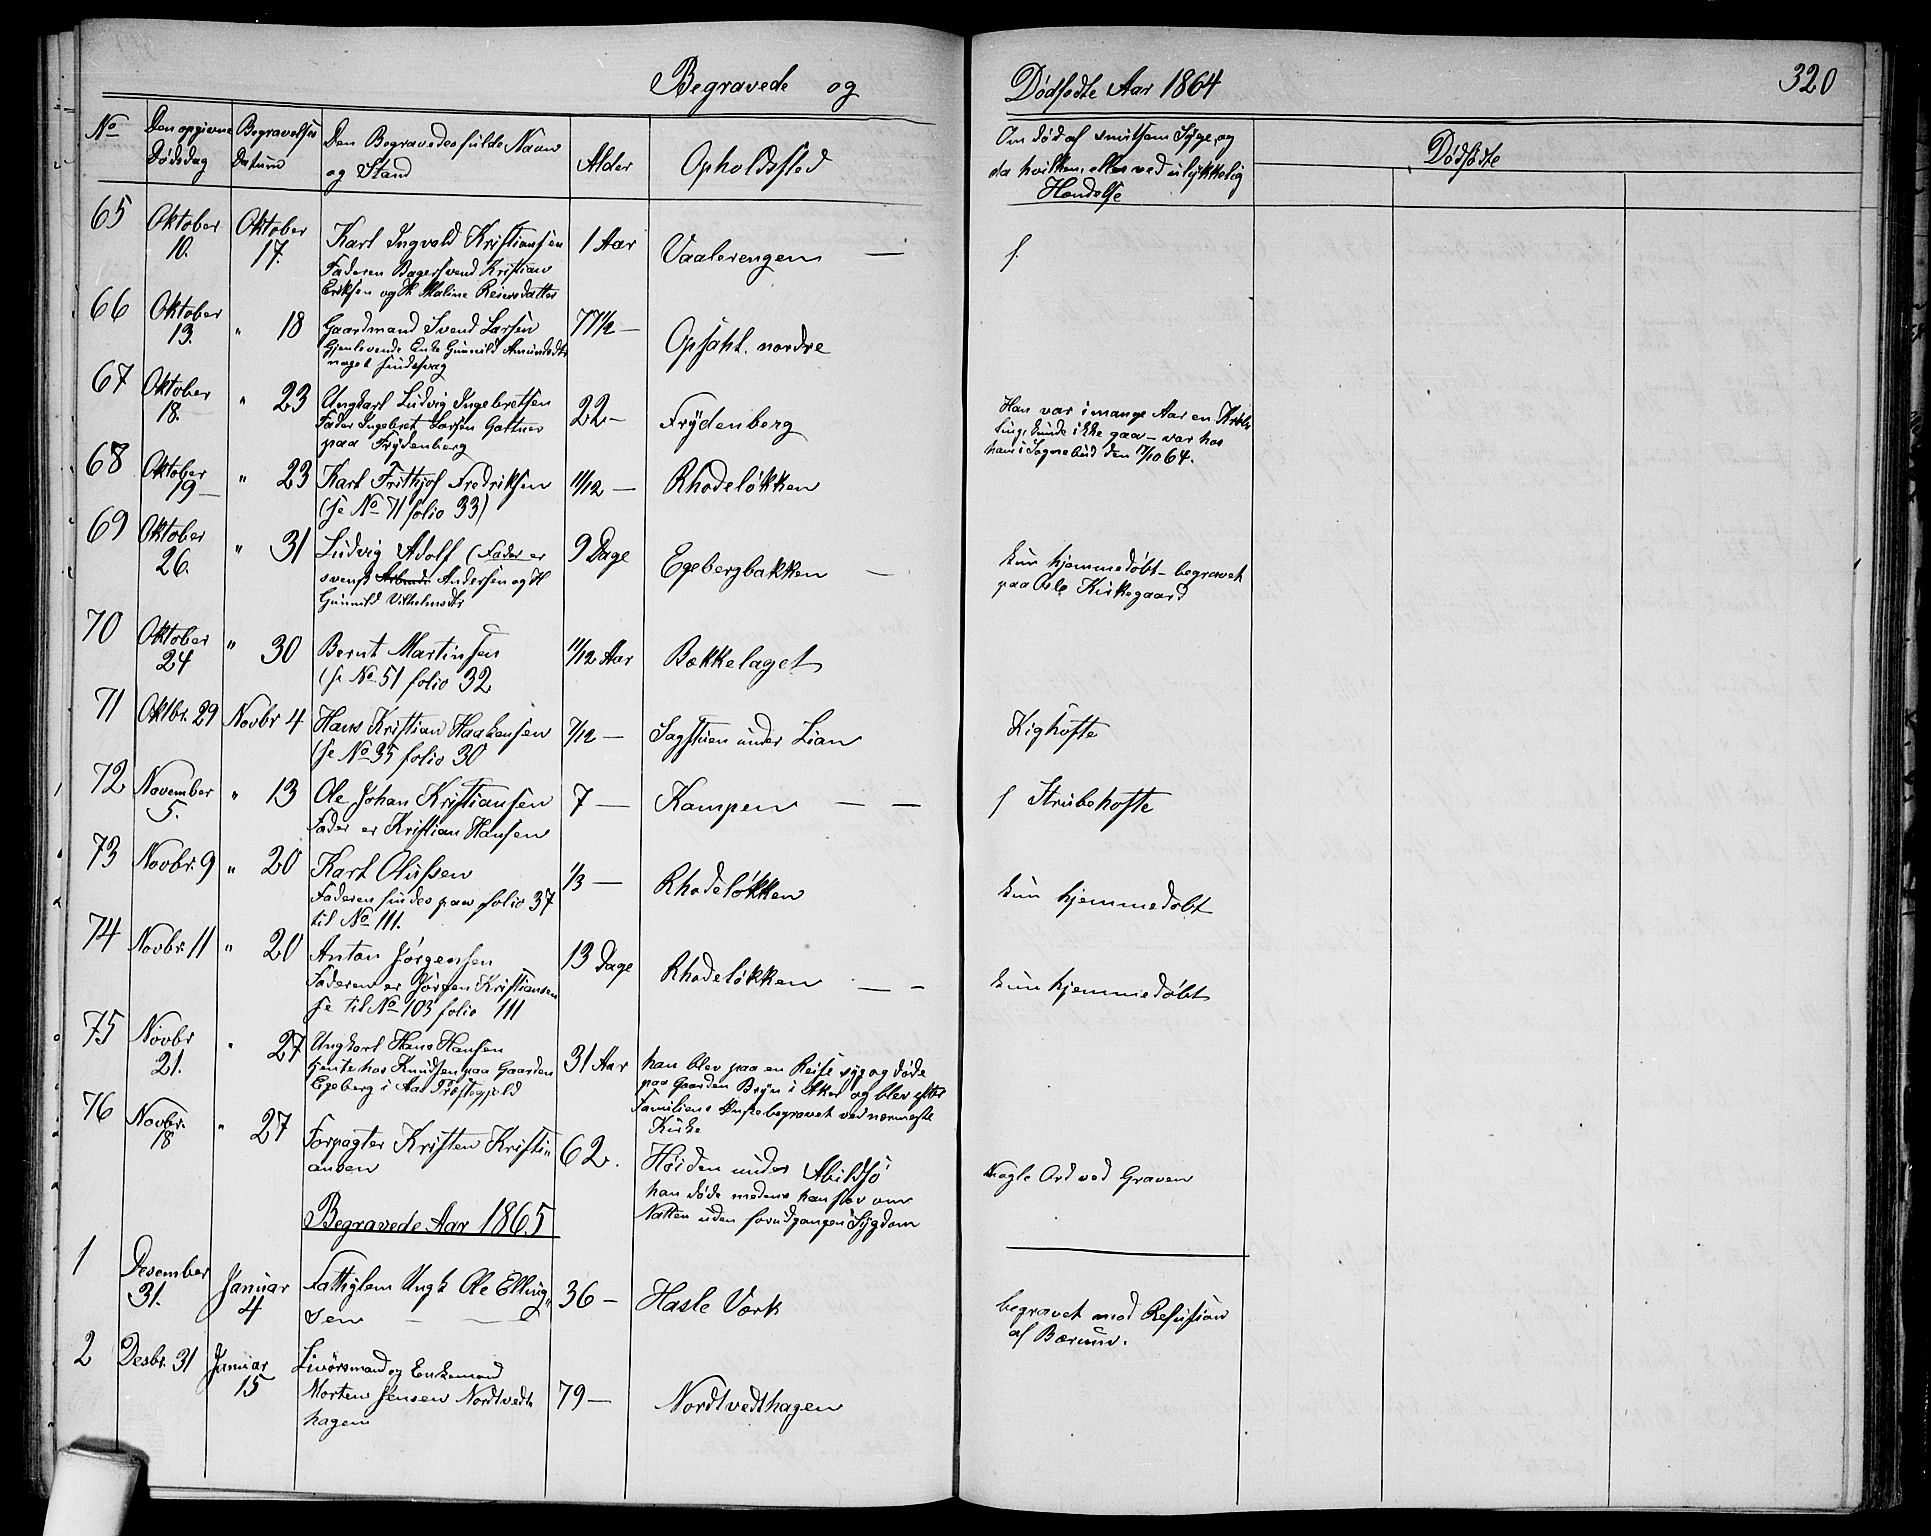 Begravede og Dödfödte Aar 1864 320
No
Den opgivne Dödsdag
Begravelses Datum
Den Begravedes fulde Navn og Stand
Alder
Opholdssted
Om död af smitsom Syge, og
da hvilken, eller ved ulykkelig
Hændelse
Dödfödte
65 Oktober 10. Oktober 17. Karl Ingvald Kristiansen 1 Aar Vaalerengen —
Faderen Bagersvend Kristian
Eriksen og H. Maline Reiersdatter
66 Oktober 13. " 18 Gaardmand Svend Larsen 77 1/2 — Opsahl nordre
Gjenlevende Enke Gunnild Amundsdtr
noget sindssvag
67 Oktober 18. " 23 Ungkarl Ludvig Ingebretsen 22 — Frydenberg
Fader Ingebret Larsen Gartner
paa Frydenberg
Han var i mange Aar en
kunde ikke gaa — var hos
ham i Sognebud den 17/10 64.
68 Oktober 19 — " 23 Karl Frithjof Fredriksen 11/12 — Rhodeløkken
(se No 71 folio 33)
69 Oktober 26. " 31 Ludvig Adolf (Fader er 9 Dage Egebergbakken —
svensk Andersen og H
Gunnild Vilhelmsdtr
kun hjemmedøbt — begravet
paa Oslo Kirkegaard
70 Oktober 24 " 30 Bernt Martinsen 11/12 Aar Bækkelaget
(se No 51 folio 32
71 Oktbr. 29 Novbr 4 Hans Kristian Haakensen 7/12 — Sagstuen under Lian Kighoste
(se No 35 folio 30
72 November 5. " 13 Ole Johan Kristiansen 7 — Kampen — — Strubehoste
Fader er Kristian Hansen
73 Novbr. 9 " 20 Karl Olussen 1/3 — Rhodeløkken kun hjemmedøbt
Faderen findes paa folio 37
til No 111.
74 Novbr. 11 " 20 Anton Jørgensen 13 Dage Rhodeløkken — — kun hjemmedøbt
Faderen er Jörgen Kristiansen
se til No 103 folio 111
75 Novbr 21. " 27 Ungkarl Hans Hansen 31 Aar han blev paa en Reise syg og døde
tjente hos Knudsen paa Gaarden
Egeberg i Aas Præstegjeld
paa Gaarden Bryn i Aker og blev efter
Familiens Ønske begravet ved nærmeste
Kirke
76 Novbr. 18 " 27 Forpagter Kristen Kristi-
ansen
62. Höiden under Abildsö
han døde medens han sov om
Natten uden forudgangen Sygdom
Nogle Ord ved Graven
Begravede Aar 1865
1 Desember 31. Januar 4 Fattiglem Ungk Ole Elling-
sen
36 — Hasle Værk
begravet med Refusion
af Bærum.
2 Desbr. 31 Januar 15 og Enkemand
Morten Jensen Nordtvedt-
hagen
79 — Nordtvedthagen